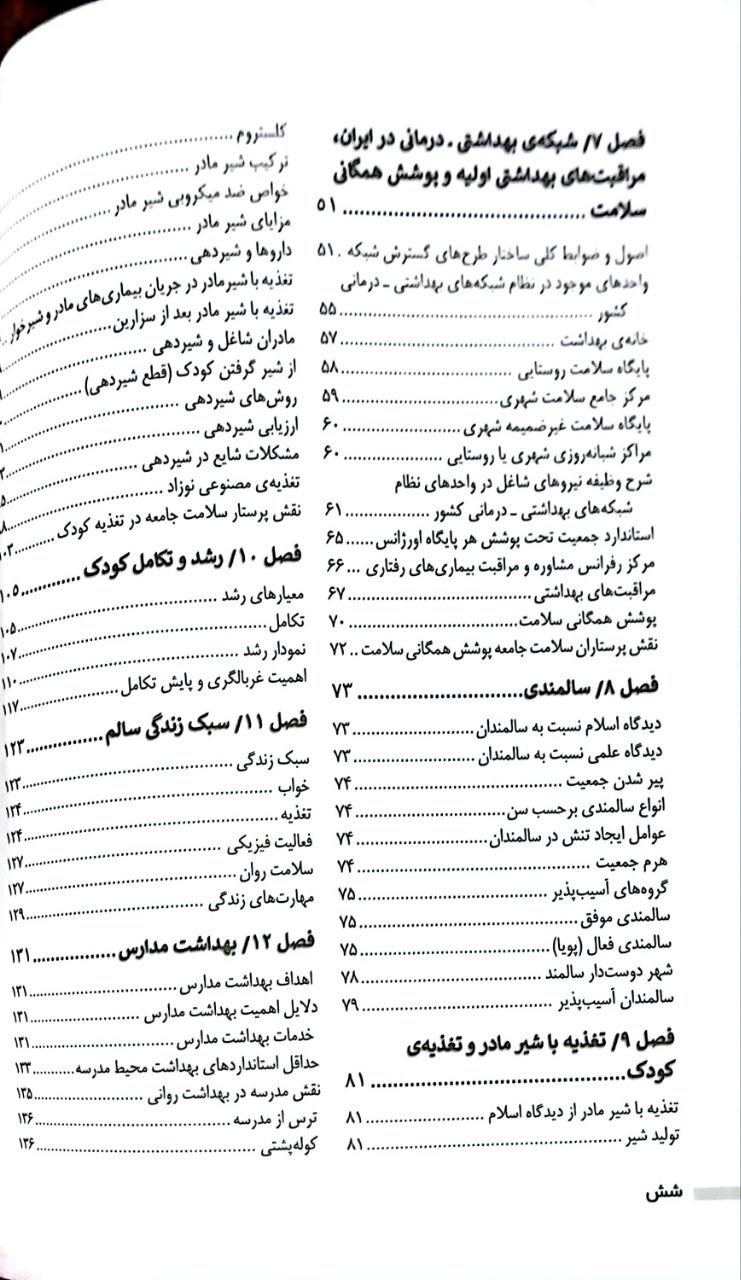 فصل ۷/ شبکه‌ی بهداشتی . درمانی در ایران،
مراقبت‌های بهداشتی اولیه و پوشش همگانی
سلامت ........................................ ۵۱
اصول و ضوابط کلی ساختار طرح‌های گسترش شبکه . ۵۱
واحدهای موجود در نظام شبکه‌های بهداشتی ـ درمانی
کشور ........................................ ۵۵
خانه‌ی بهداشت ........................................ ۵۷
پایگاه سلامت روستایی ........................................ ۵۸
مرکز جامع سلامت شهری ........................................ ۵۹
پایگاه سلامت غیرضمیمه شهری ........................................ ۶۰
مراکز شبانه‌روزی شهری یا روستایی ........................................ ۶۰
شرح وظیفه نیروهای شاغل در واحدهای نظام
شبکه‌های بهداشتی ـ درمانی کشور ................... ۶۱
استاندارد جمعیت تحت پوشش هر پایگاه اورژانس...... ۶۵
مرکز رفرانس مشاوره و مراقبت بیماری‌های رفتاری ... ۶۶
مراقبت‌های بهداشتی ........................................ ۶۷
پوشش همگانی سلامت ........................................ ۷۰
نقش پرستاران سلامت جامعه پوشش همگانی سلامت .. ۷۲
فصل ۸/ سالمندی ........................................ ۷۳
دیدگاه اسلام نسبت به سالمندان ........................................ ۷۳
دیدگاه علمی نسبت به سالمندان ........................................ ۷۳
پیر شدن جمعیت ........................................ ۷۴
انواع سالمندی برحسب سن ........................................ ۷۴
عوامل ایجاد تنش در سالمندان ........................................ ۷۴
هرم جمعیت ........................................ ۷۴
گروه‌های آسیب‌پذیر ........................................ ۷۵
سالمندی موفق ........................................ ۷۵
سالمندی فعال (پویا) ........................................ ۷۵
شهر دوست‌دار سالمند ........................................ ۷۸
سالمندان آسیب‌پذیر ........................................ ۷۹
فصل ۹/ تغذیه با شیر مادر و تغذیه‌ی
کودک ........................................ ۸۱
تغذیه با شیر مادر از دیدگاه اسلام ........................................ ۸۱
تولید شیر ........................................ ۸۱
کلستروم ........................................
ترکیب شیر مادر ........................................
خواص ضد میکروبی شیر مادر ........................................
مزایای شیر مادر ........................................
داروها و شیردهی ........................................
تغذیه با شیرمادر در جریان بیماری‌های مادر و شیرخوار ..
تغذیه با شیر مادر بعد از سزارین ........................................
مادران شاغل و شیردهی ........................................
از شیر گرفتن کودک (قطع شیردهی) ........................................
روش‌های شیردهی ........................................
ارزیابی شیردهی ........................................
مشکلات شایع در شیردهی ........................................
تغذیه‌ی مصنوعی نوزاد ........................................
نقش پرستار سلامت جامعه در تغذیه کودک .......... ۱۰۳
فصل ۱۰/ رشد و تکامل کودک ............ ۱۰۵
معیارهای رشد ........................................ ۱۰۵
تکامل ........................................ ۱۰۷
نمودار رشد ........................................ ۱۱۰
اهمیت غربالگری و پایش تکامل ........................................ ۱۱۷
فصل ۱۱/ سبک زندگی سالم ............... ۱۲۳
سبک زندگی ........................................ ۱۲۳
خواب ........................................ ۱۲۴
تغذیه ........................................ ۱۲۴
فعالیت فیزیکی ........................................ ۱۲۷
سلامت روان ........................................ ۱۲۷
مهارت‌های زندگی ........................................ ۱۲۹
فصل ۱۲/ بهداشت مدارس ................ ۱۳۱
اهداف بهداشت مدارس ........................................ ۱۳۱
دلایل اهمیت بهداشت مدارس ........................................ ۱۳۱
خدمات بهداشت مدارس ........................................ ۱۳۱
حداقل استانداردهای بهداشت محیط مدرسه .......... ۱۳۳
نقش مدرسه در بهداشت روانی ........................................ ۱۳۵
ترس از مدرسه ........................................ ۱۳۶
کوله‌پشتی ........................................ ۱۳۶
شش